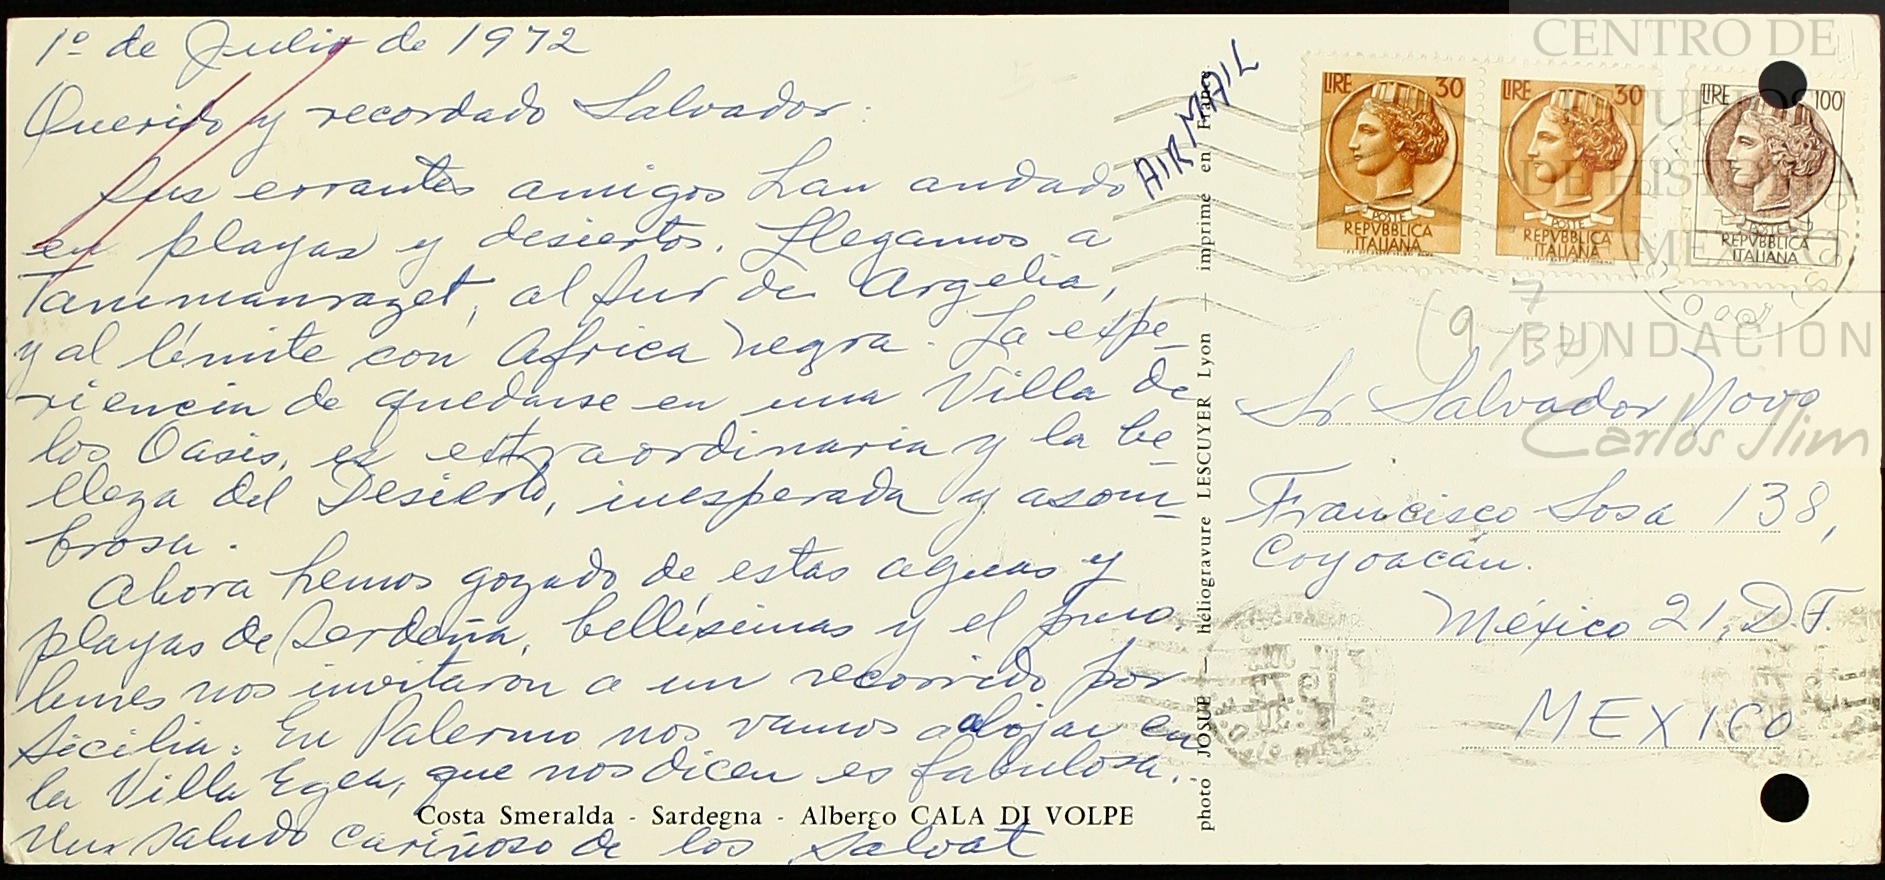 1º de Julio de 1972
Querido y recordado Salvador:
Sus errantes amigos han andado
en playas y desiertos. Llegamos a
Tammanrazet, al sur de Argelia,
y al límite con Africa negra. La expe-
riencia de quedarse en una Villa de
los Oasis, es extraordinaria y la be-
lleza del Desierto, inesperada y asom-
brosa.
Ahora hemos gozado de estas aguas y
playas de Serdeña, bellísimas y el
nos invitaron a un recorrido por
Sicilia. En Palermo nos vamos alojar en
la Villa Egea, que nos dicen es fabulosa.
Un saludo cariñoso de los Salvat
Costa Smeralda - Sardegna - Albergo CALA DI VOLPE
photo JOSUÉ — héliogravure LESCUYER Lyon — imprimé en France
AIR MAIL
LIRE 30
POSTE
REPVBBLICA
ITALIANA
LIRE 30
POSTE
REPVBBLICA
ITALIANA
LIRE 100
POSTE
REPVBBLICA
ITALIANA
Sr Salvador Novo
Francisco Sosa 138,
Coyoacán.
México 21, D.F.
MEXICO
CENTRO DE
ESTUDIOS
DE HISTORIA
DE MEXICO
FUNDACION
Carlos Slim